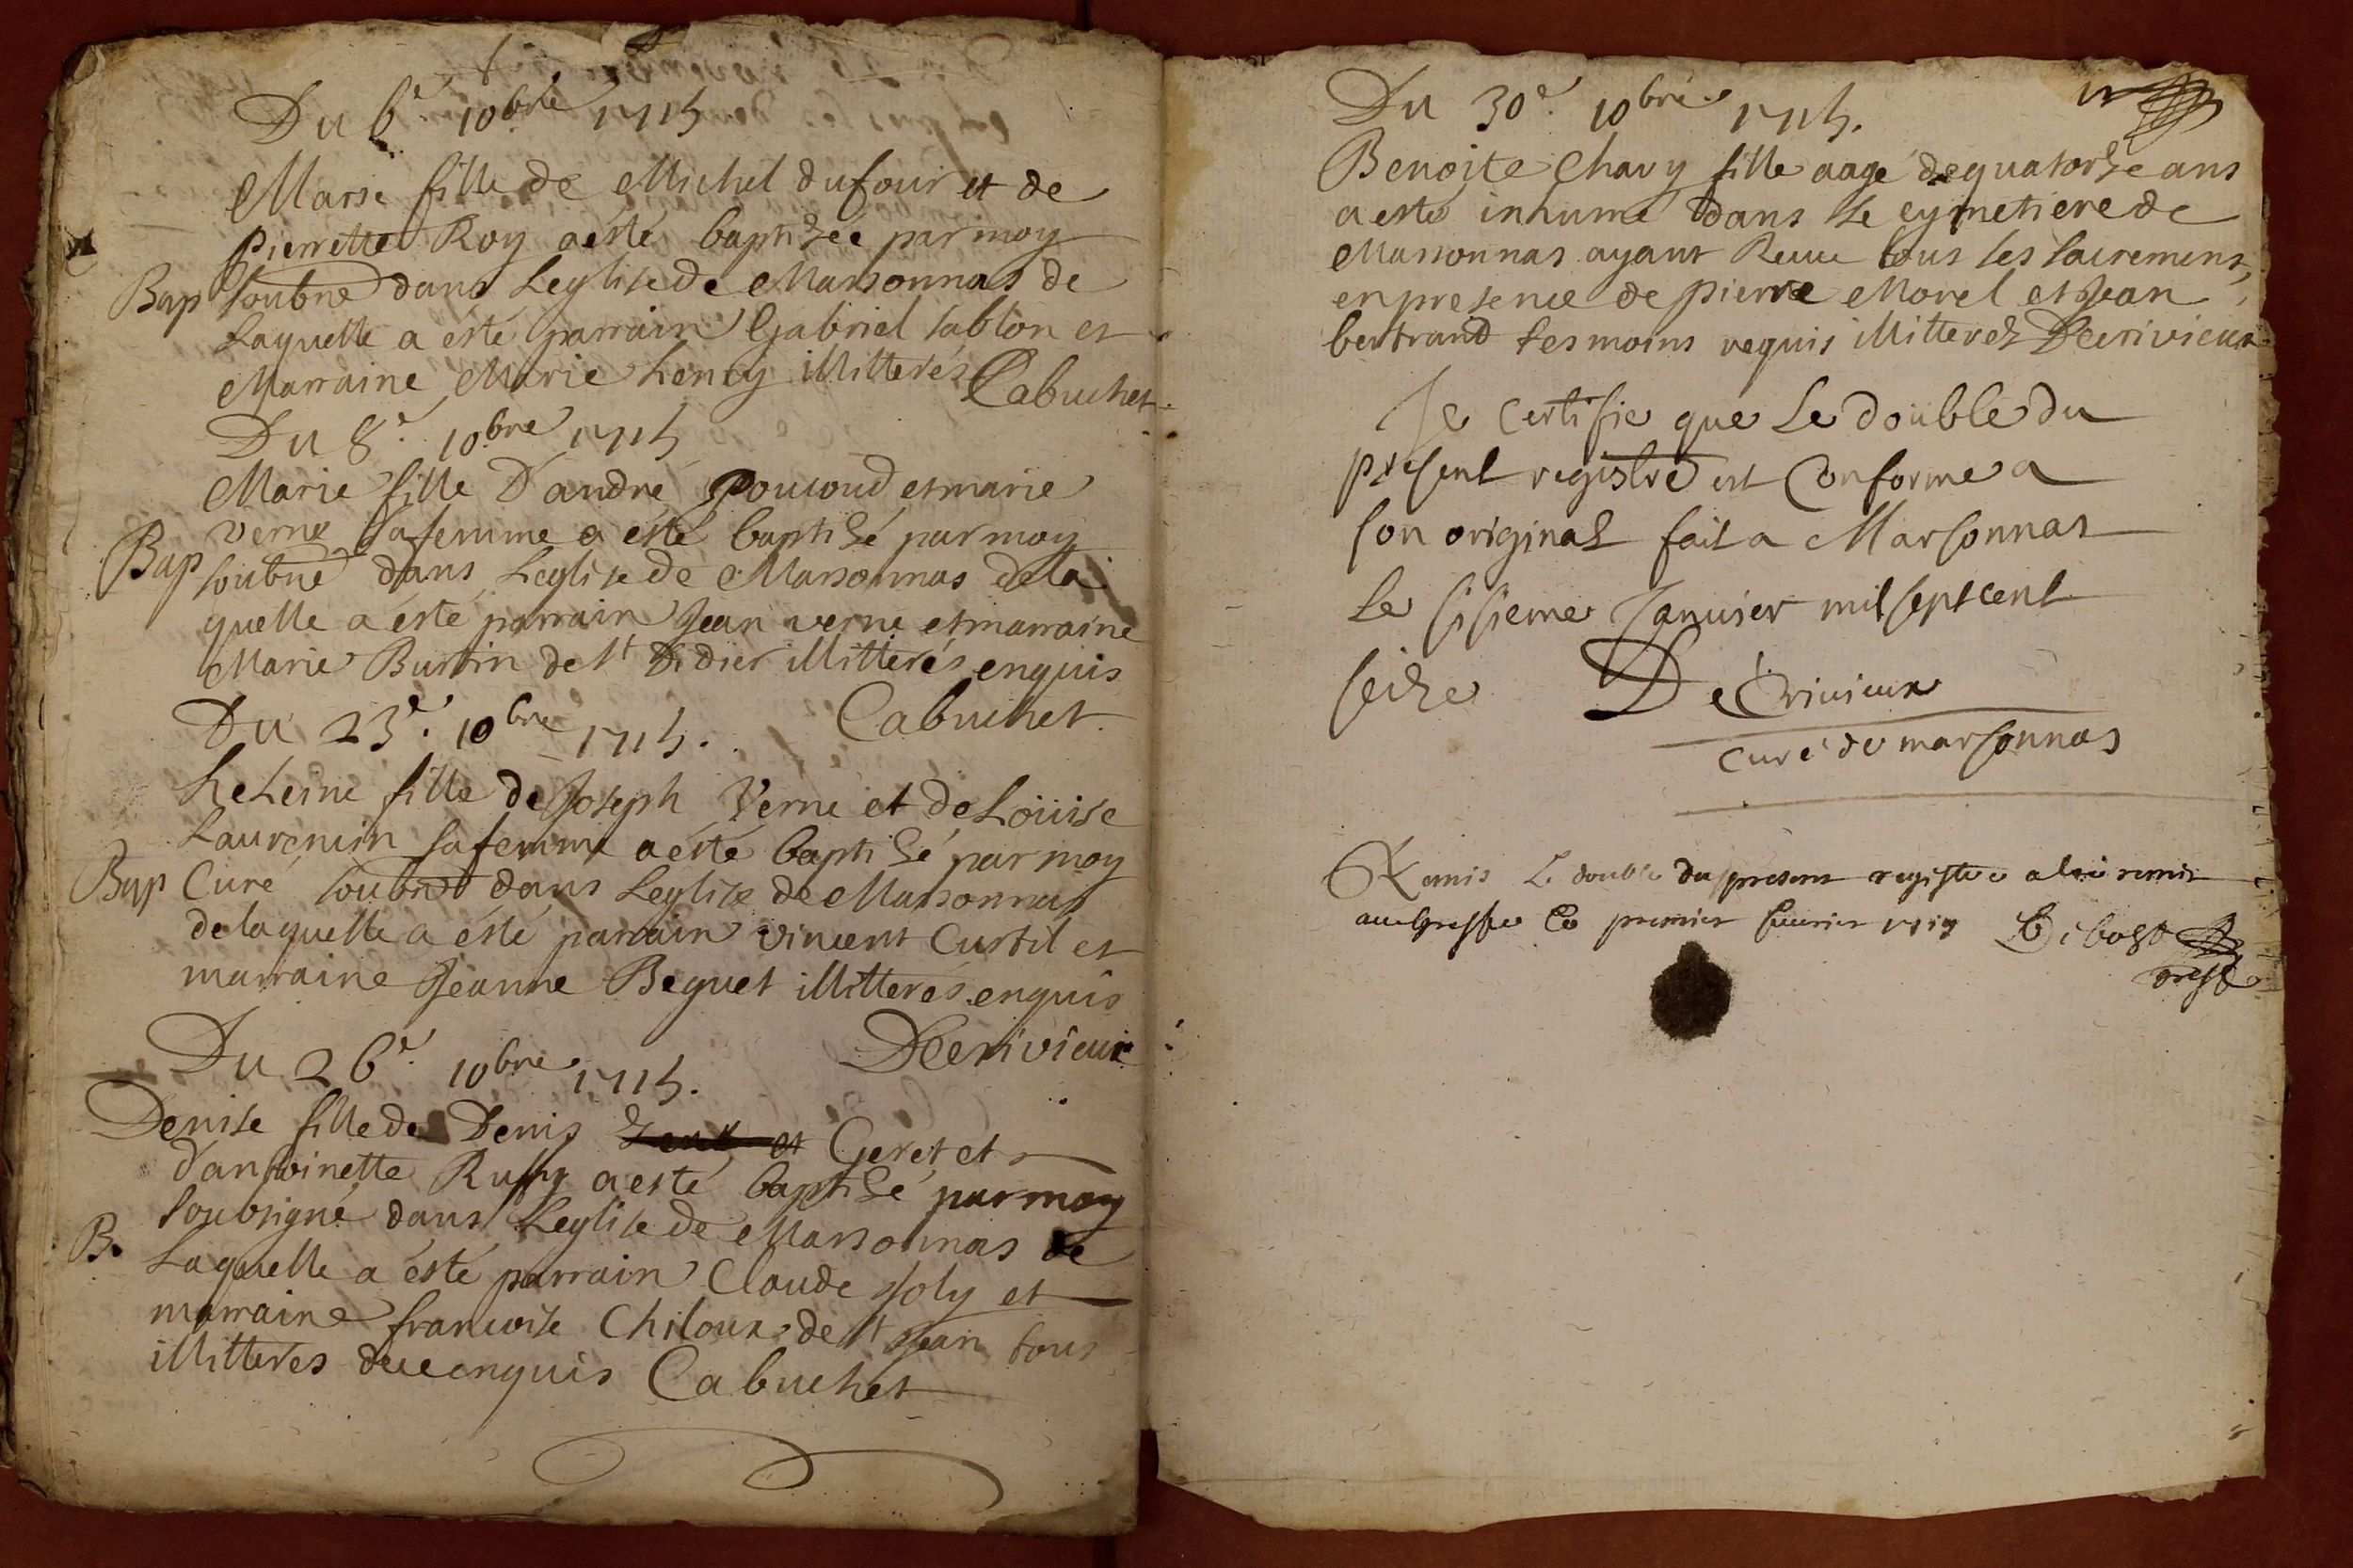 Du 6e. 10bre 1715
Marie fille de Michel dufour et de
Pierrette Roy a esté baptisée par moy
Bap soubné dans Leglise de Marsonnas de
Laquelle a esté parrain Gabriel sablon et
Marraine Marie heney illitterés Cabuchet
Du 8e. 10bre 1715
Marie fille D'andre Pououd et marie
verne sa femme a esté baptisé par moy
Bap soubné dans Leglise de Marsonnas de la
quelle a esté parrain Jean verne et marraine
Marie Burtin de st Didier illitterés enquis
Cabuchet
Du 23e. 10bre 1715.
heleine fille de Joseph Verne et de Loüise
Laurencin sa femme a esté baptisé par moy
Bap Curé soubné dans Leglise de Marsonnas
de laquelle a esté parrain vincent Curtil et
marraine Jeanne Beguet illitterés enquis
DeCrivieux
Du 26e. 10bre 1715.
Denise fille de Denis et Geret et
d'antoinette Ruffy a esté baptisé par moy
soubsigné dans Leglise de Marsonnas de
B. Laquelle a esté parrain Claude Joly et
marraine francoise Chiloux de st Jean tous
illitteres de ce enquis Cabuchet
Du 30e. 10bre 1715.
Benoite Chavy fille aagé de quatorse ans
a esté inhumé dans le cymetiere de
Marsonnas ayant Receu tous les sacremens
en presence de pierre Morel et Jean
bertrand tesmoins requis illitterés DeCrivieux
Je Certifie que Le double du
present registre est Conforme a
son original fait a Marsonnas
Le sisieme Janvier mil sept cent
seize DeCrivieux
curé de marsonnas
Remis Le double du present registre a esté remis
au Greffe Le premier feuvrier